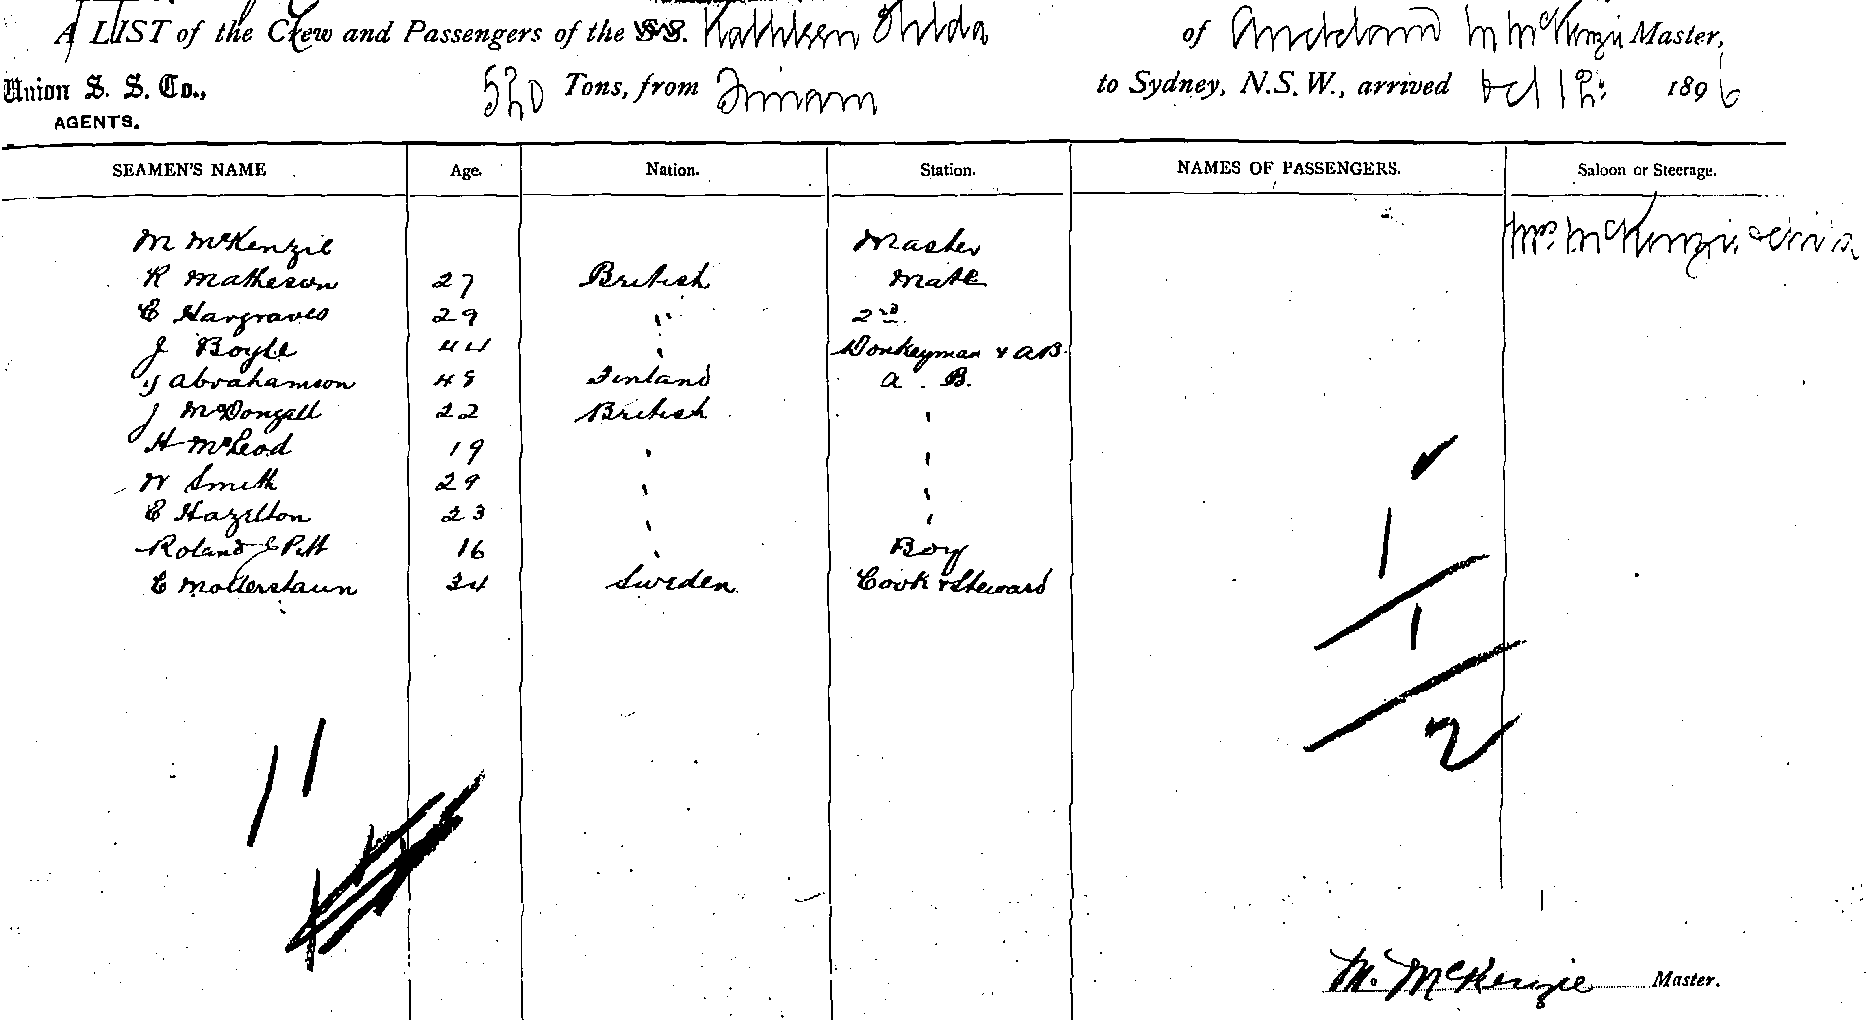 A LIST of the Crew and Passengers of the S.S. Kathleen Hilda of Auckland M McKenzie Master,
Union S. S. Co., 520 Tons, from Timaru to Sydney, N.S.W., arrived Oct 12: 1896
AGENTS.
SEAMEN'S NAME Age. Nation. Station. NAMES OF PASSENGERS. Saloon or Steerage.
Mrs McKenzie
M McKenzie Master
R Matheson 27 British Mate
E Hargraves 29 " 2nd
J Boyle 44 " Donkeyman & AB
Y Abrahamson 48 Finland A. B.
J McDougall 22 British "
H McLeod 19 " "
W Smith 29 " "
E Hazelton 23 " "
Roland J Pitt 16 " Boy
E Mollerstaun 34 Sweden Cook & Steward
1
1
2
11
M. McKenzie Master.